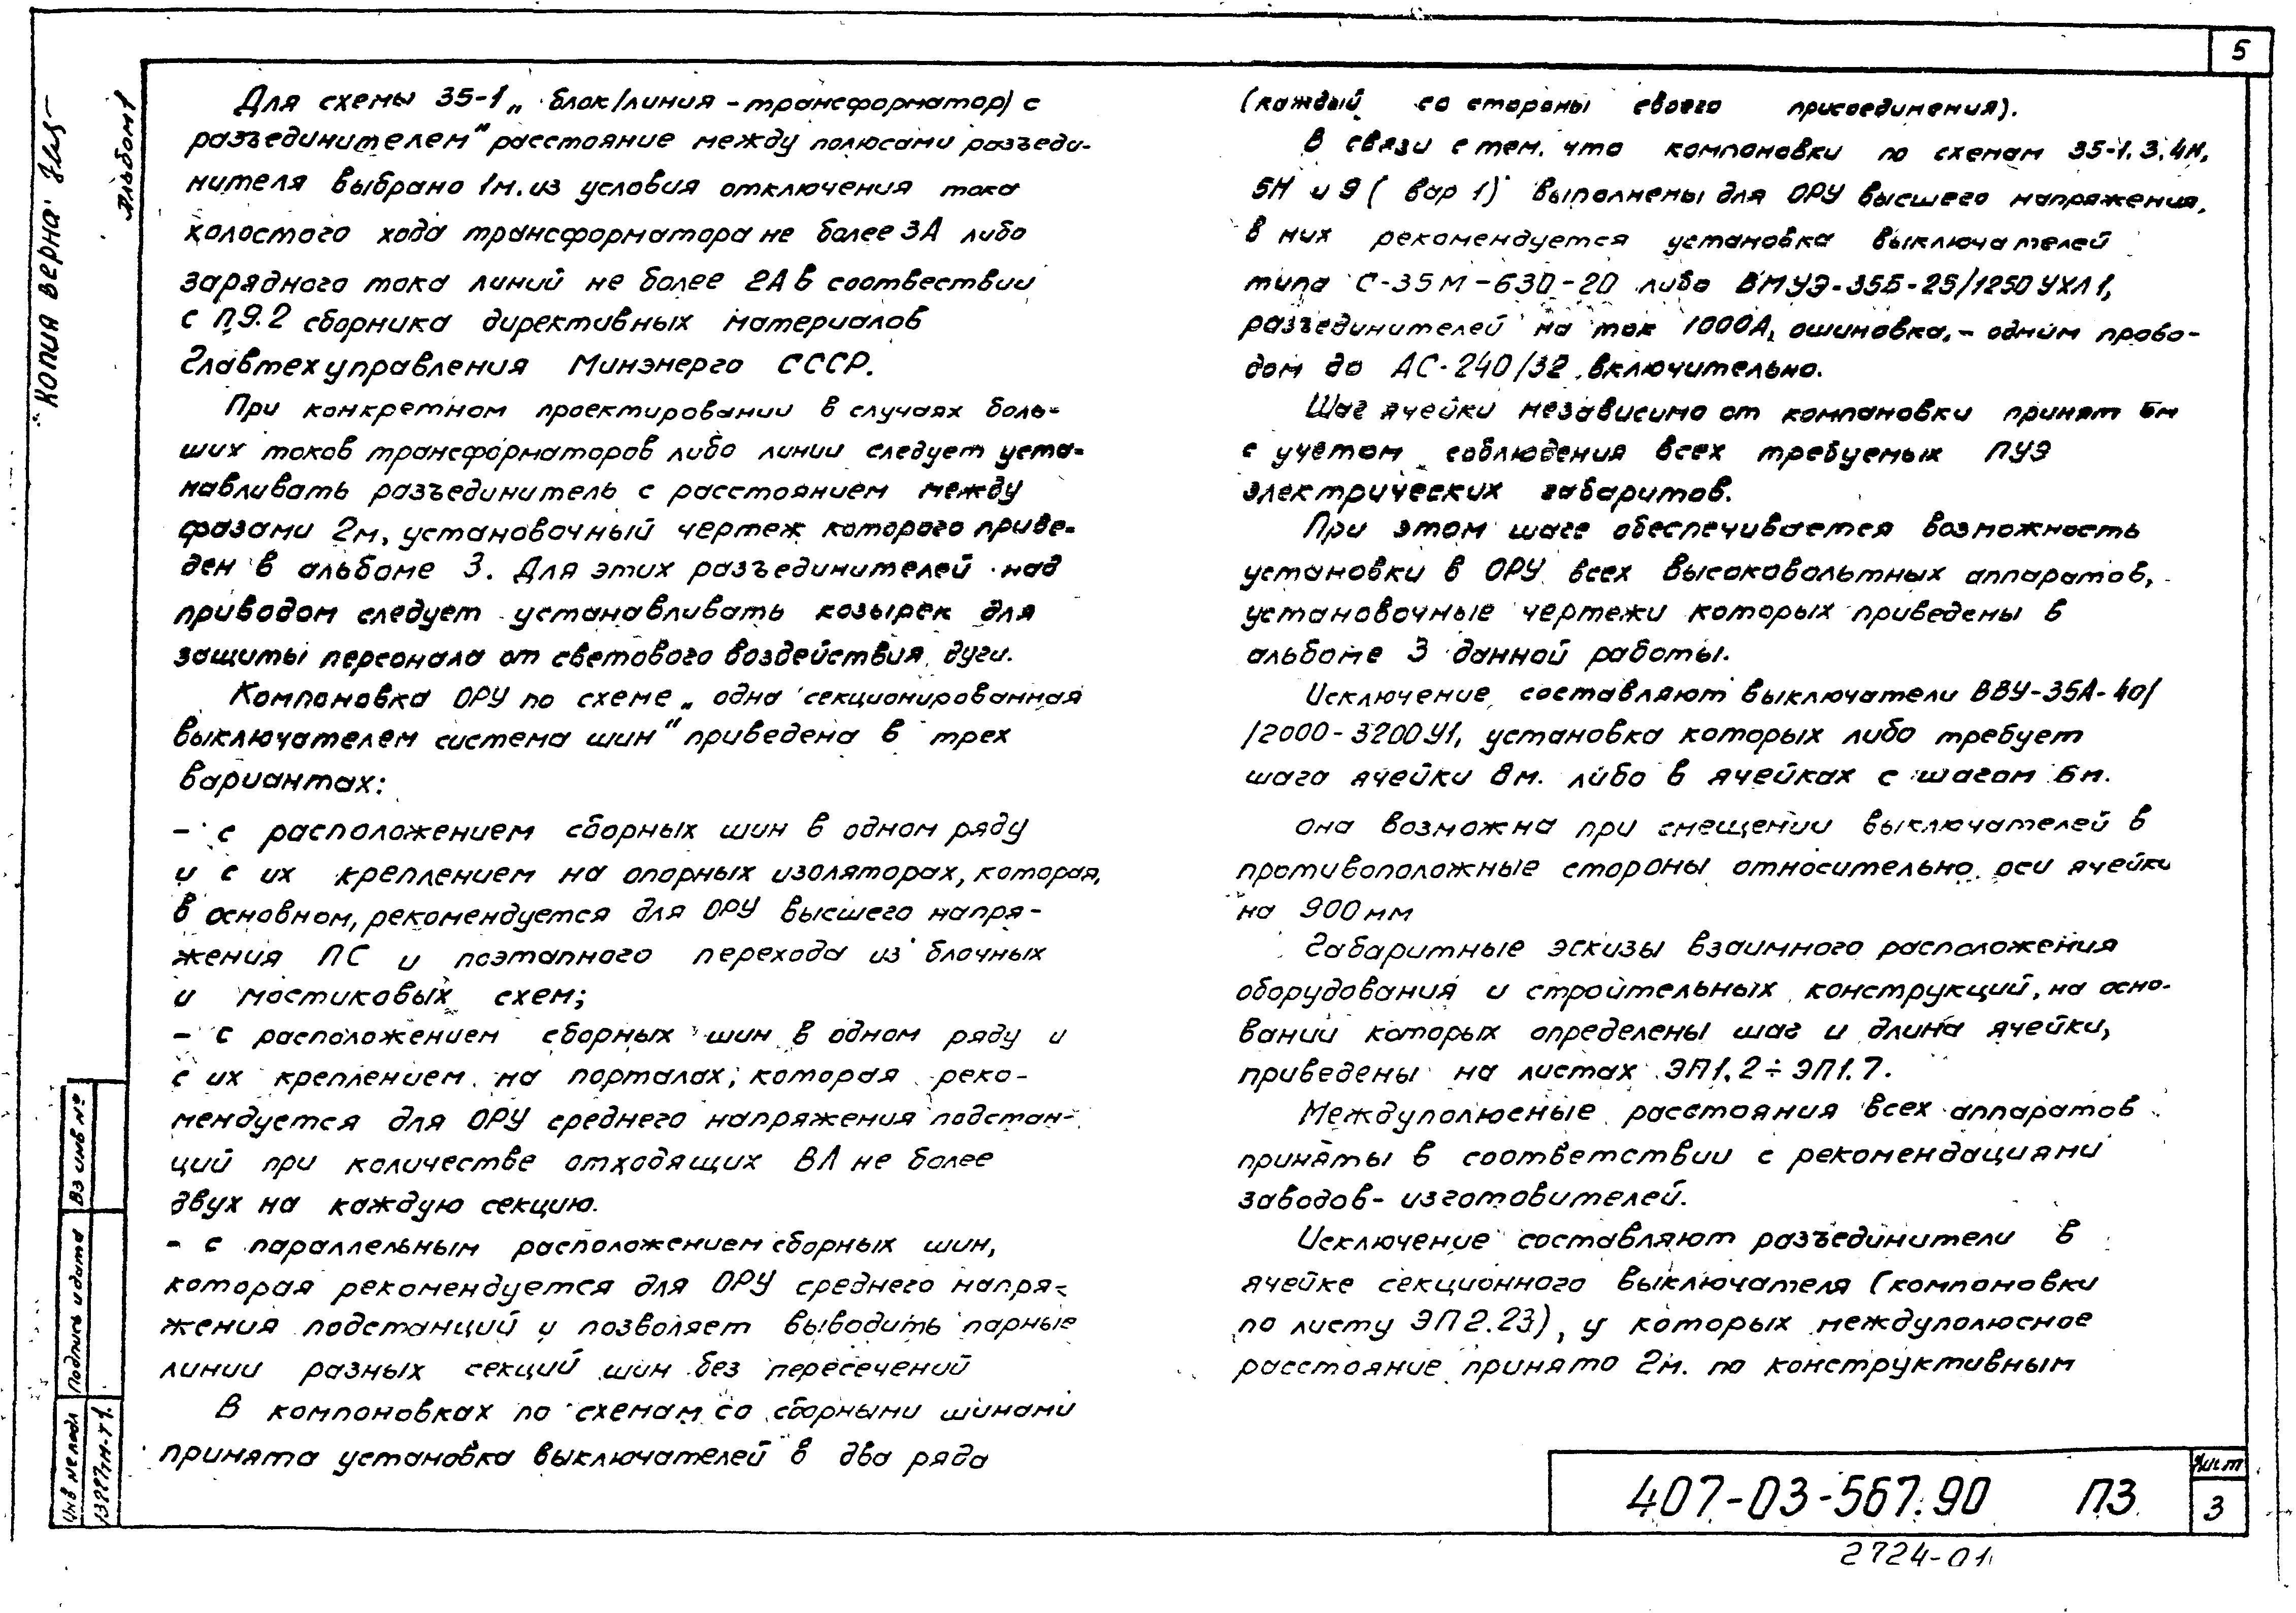 5
Копия верна
Альбом 1
Для схемы 35-1 „ блок (линия - трансформатор) с
разъединителем" расстояние между полюсами разъеди-
нителя выбрано 1м. из условия отключения тока
холостого хода трансформатора не более 3А либо
зарядного тока линий не более 2А в соотвествии
с п.9.2 сборника директивных материалов
Главтехуправления Минэнерго СССР.
При конкретном проектировании в случаях боль-
ших токов трансформаторов либо линии следует уста-
навливать разъединитель с расстоянием между
фазами 2м, установочный чертеж которого приве-
ден в альбоме 3. Для этих разъединителей над
приводом следует устанавливать козырек для
защиты персонала от светового воздействия дуги.
Компоновка ОРУ по схеме „ одна секционированная
выключателем система шин" приведена в трех
вариантах:
- с расположением сборных шин в одном ряду
и с их креплением на опорных изоляторах, которая,
в основном, рекомендуется для ОРУ высшего напря-
жения ПС и поэтапного перехода из блочных
и мостиковых схем;
- с расположением сборных шин в одном ряду и
с их креплением на порталах, которая реко-
мендуется для ОРУ среднего напряжения подстан-
ций при количестве отходящих ВЛ не более
двух на каждую секцию.
- с параллельным расположением сборных шин,
которая рекомендуется для ОРУ среднего напря-
жения подстанций и позволяет выводить парные
линии разных секций шин без пересечений
В компоновках по схемам со сборными шинами
принята установка выключателей в два ряда
(каждый со стороны своего присоединения).
В связи с тем, что компоновки по схемам 35-1, 3, 4Н,
5Н и 9 ( вар 1) выполнены для ОРУ высшего напряжения,
в них рекомендуется установка выключателей
типа С-35М-630-20 либо ВМУЭ-35Б-25/1250 УХЛ1,
разъединителей на ток 1000А, ошиновка, - одним прово-
дом до АС-240/32 включительно.
Шаг ячейки независимо от компановки принят 6м
с учетом соблюдения всех требуемых ПУЭ
электрических габаритов.
При этом шаге обеспечивается возможность
установки в ОРУ всех высоковольтных аппаратов,
установочные чертежи которых приведены в
альбоме 3 данной работы.
Исключение составляют выключатели ВВУ-35А-40/
/2000-3200У1, установка которых либо требует
шага ячейки 8м. либо в ячейках с шагом 6м.
она возможна при смещении выключателей в
противоположные стороны относительно оси ячейки
на 900мм
Габаритные эскизы взаимного расположения
оборудования и строительных конструкций, на осно-
вании которых определены шаг и длина ячейки,
приведены на листах ЭП1.2÷ЭП1.7.
Междуполюсные расстояния всех аппаратов
приняты в соответствии с рекомендациями
заводов-изготовителей.
Исключение составляют разъединители в
ячейке секционного выключателя (компоновки
по листу ЭП2.23), у которых междуполюсное
расстояние принято 2м. по конструктивным
Вз инв №
Подпись и дата
Инв № подл
13227тм-Т1.
407-03-567.90 ПЗ
Лист
3
2724-01